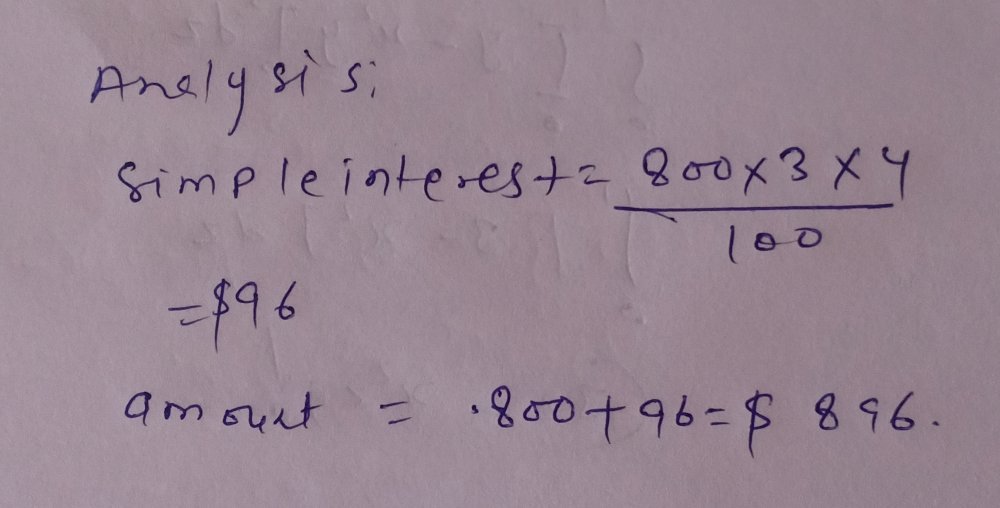 Analysis;
Simple interest = 800 x 3 x 4
100
= $96
amount = .800 + 96 = $ 896.